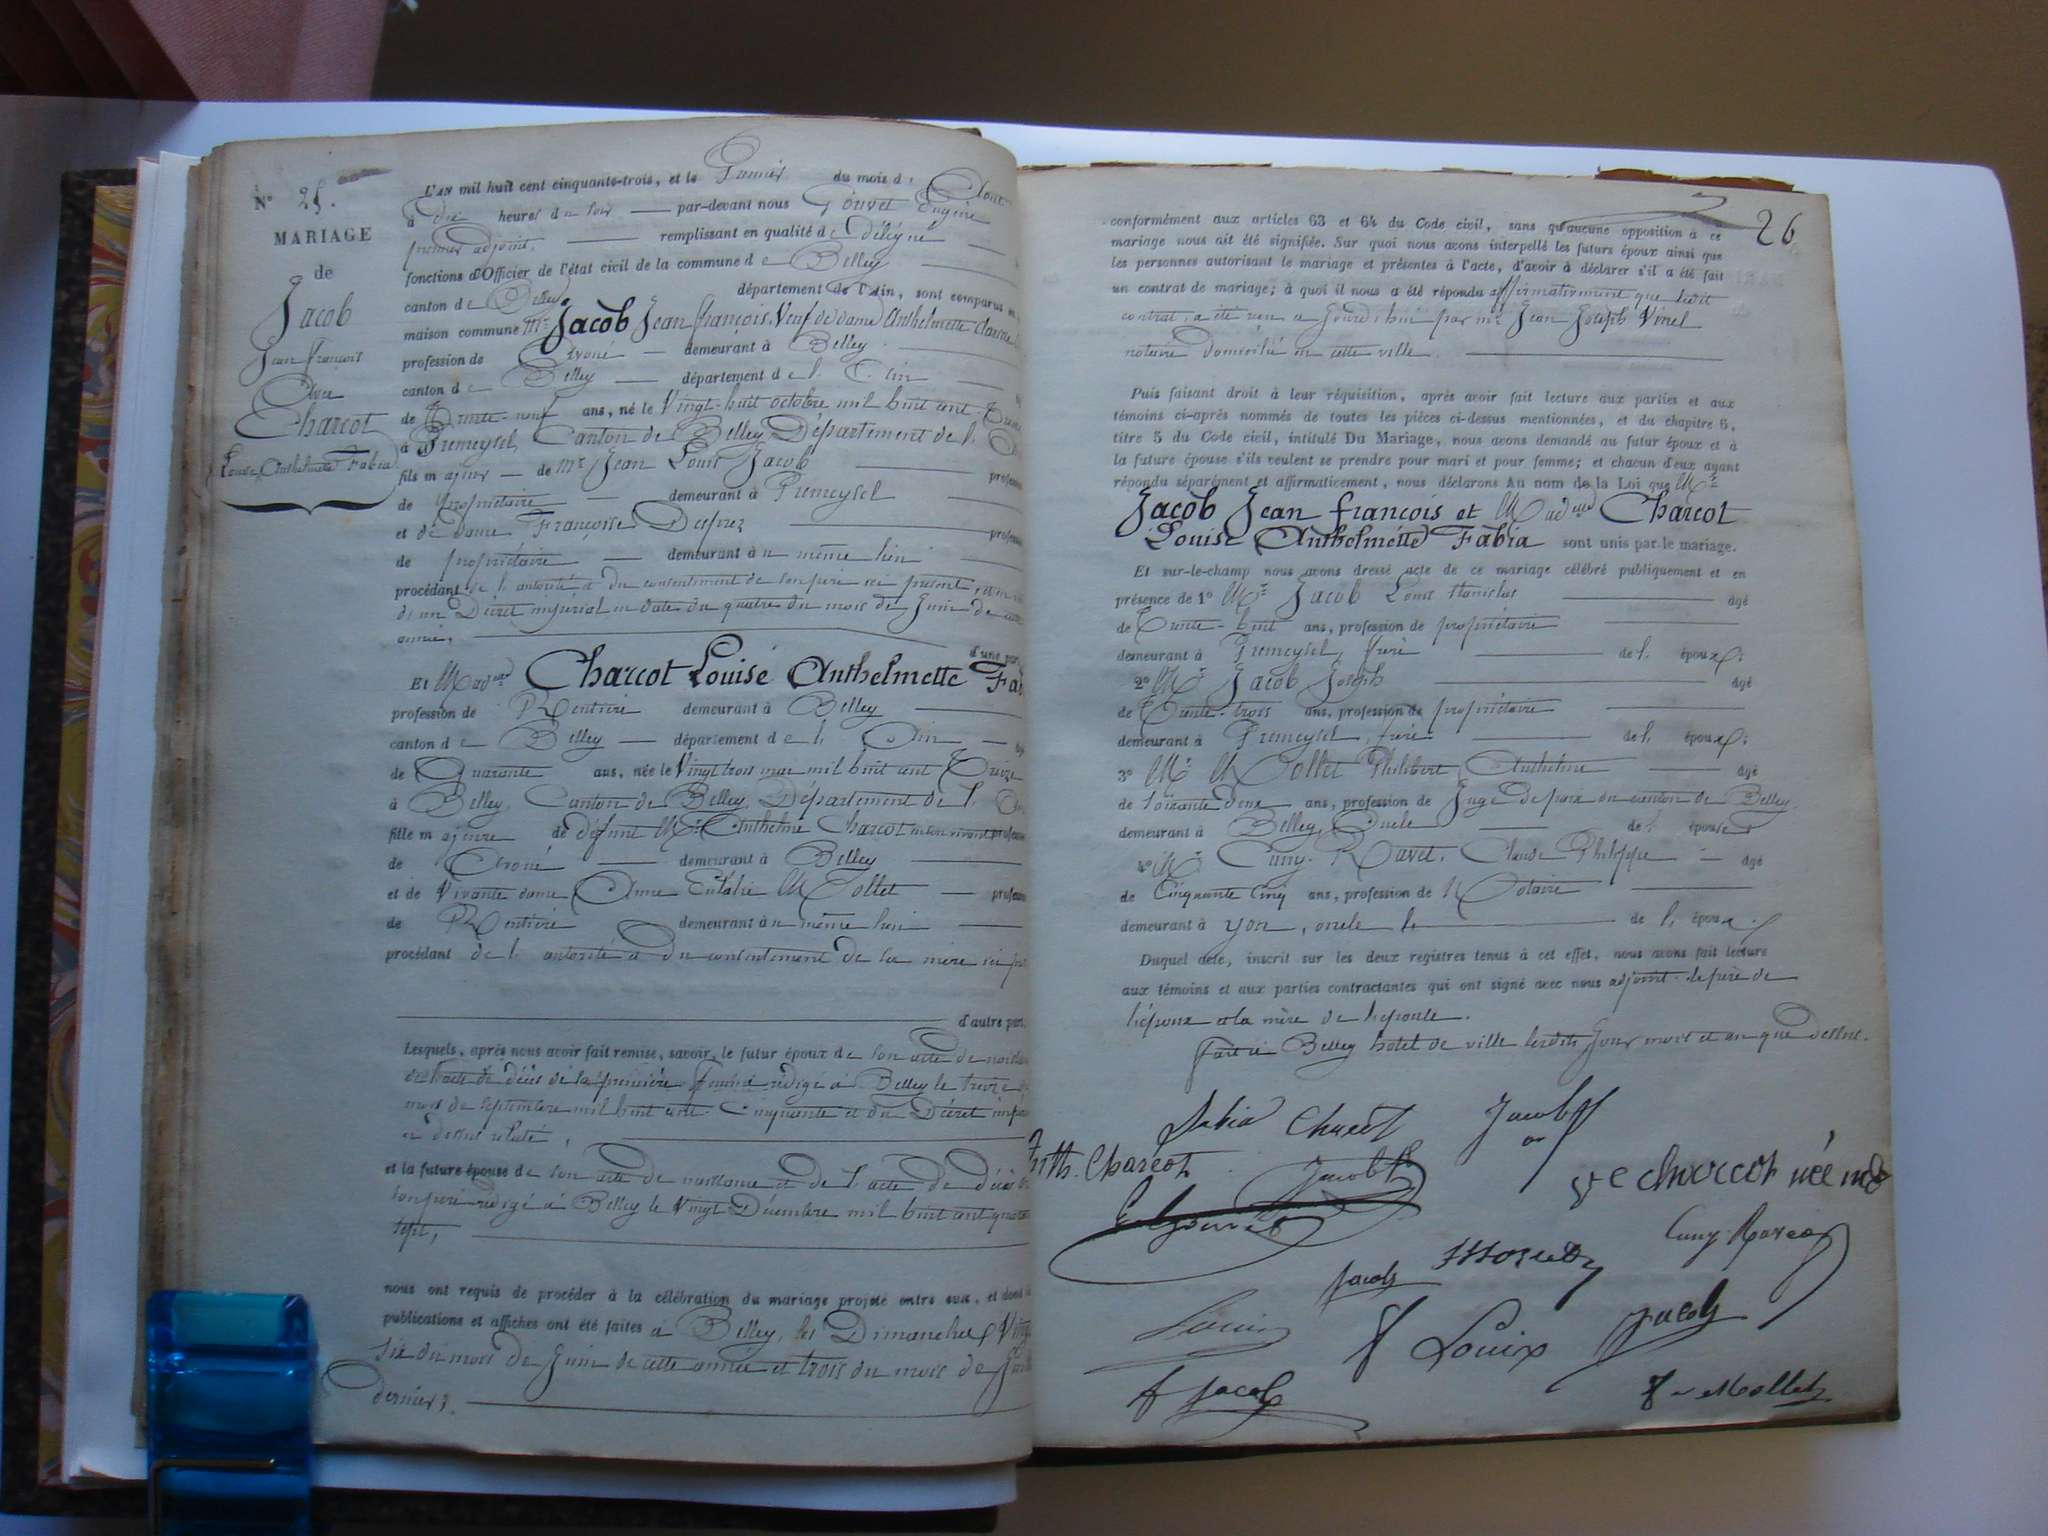 N° 25.
MARIAGE
de
Jacob
Jean françois
Avec
Charcot
Louise Anthelmette Fabia
L'an mil huit cent cinquante-trois, et le Premier du mois d'Août
à dix heures du soir par-devant nous Gouvet Eugène
premier adjoint, remplissant en qualité de Délégué
fonctions d'Officier de l'état civil de la commune de Belley
canton de Belley département de l'Ain, sont comparus en
maison commune Mr Jacob Jean françois, Veuf de dame Anthelmette
profession de Avoué demeurant à Belley
canton de Belley département de l'Ain
de Trente-neuf ans, né le Vingt-huit octobre mil huit cent
à Premeyzel, Canton de Belley, Département de l'
fils majeur de Mr Jean Louis Jacob
de propriétaire demeurant à Premeyzel
et de dame Françoise Desprez
de propriétaire demeurant au même lieu
procédant de l'autorité et du consentement de son père ici présent,
d'un Décret impérial en date du quatre du mois de Juin de cette
année, d'une part,
Et Madlle Charcot Louise Anthelmette
profession de Rentière demeurant à Belley
canton de Belley département de l'Ain
de Quarante ans, née le Vingt trois mai mil huit cent Treize
à Belley, Canton de Belley, Département de l'
fille majeure de défunt Mr Anthelme Charcot en son vivant
de Avoué demeurant à Belley
et de Vivante dame Anne Eulalie Mollet
de Rentière demeurant au même lieu
procédant de l'autorité et du consentement de sa mère ici
d'autre part.
Lesquels, après nous avoir fait remise, savoir, le futur époux de son acte de
de l'acte de décès de sa première femme rédigé à Belley le treize
mois de septembre mil huit cent Cinquante et du Décret
ci dessus relaté,
et la future épouse de son acte de naissance et de l'acte de décès
son père rédigé à Belley le Vingt Décembre mil huit cent
sept,
nous ont requis de procéder à la célébration du mariage projeté entre eux, et dont
publications et affiches ont été faites à Belley, les Dimanches
six du mois de Juin de cette année et trois du mois de
derniers.
26
conformément aux articles 63 et 64 du Code civil, sans qu'aucune opposition à ce
mariage nous ait été signifiée. Sur quoi nous avons interpellé les futurs époux ainsi que
les personnes autorisant le mariage et présentes à l'acte, d'avoir à déclarer s'il a été fait
un contrat de mariage; à quoi il nous a été répondu affirmativement que ledit
contrat a été reçu aujourd'hui par me Jean Joseph Vinel
notaire domicilié en cette ville.
Puis faisant droit à leur réquisition, après avoir fait lecture aux parties et aux
témoins ci-après nommés de toutes les pièces ci-dessus mentionnées, et du chapitre 6,
titre 5 du Code civil, intitulé Du Mariage, nous avons demandé au futur époux et à
la future épouse s'ils veulent se prendre pour mari et pour femme; et chacun d'eux ayant
répondu séparément et affirmativement, nous déclarons Au nom de la Loi que Mr
Jacob Jean françois et Madlle Charcot
Louise Anthelmette Fabia sont unis par le mariage.
Et sur-le-champ nous avons dressé acte de ce mariage célébré publiquement et en
présence de 1° Mr Jacob Louis Stanislas âgé
de Trente-huit ans, profession de propriétaire
demeurant à Premeyzel, frère de l'époux;
2° Mr Jacob Joseph âgé
de Trente-trois ans, profession de propriétaire
demeurant à Premeyzel, frère de l'époux;
3° Mr Mollet Philibert Anthelme âgé
de soixante deux ans, profession de Juge de paix du canton de Belley,
demeurant à Belley, Oncle de l'épouse
4° Mr Cuny-Ravet, Claude Philippe âgé
de Cinquante cinq ans, profession de Notaire
demeurant à yon, oncle de l'époux.
Duquel acte, inscrit sur les deux registres tenus à cet effet, nous avons fait lecture
aux témoins et aux parties contractantes qui ont signé avec nous adjoint. le père de
l'époux et la mère de l'épouse.
fait à Belley hotel de ville lesdits Jour mois et an que dessus.
Fabia Charcot Jacob
Anth. Charcot Jacob
Ve charcot née
Cuny-Ravet
Jacob
Louis
Louix
Jacob
Jacob
Mollet